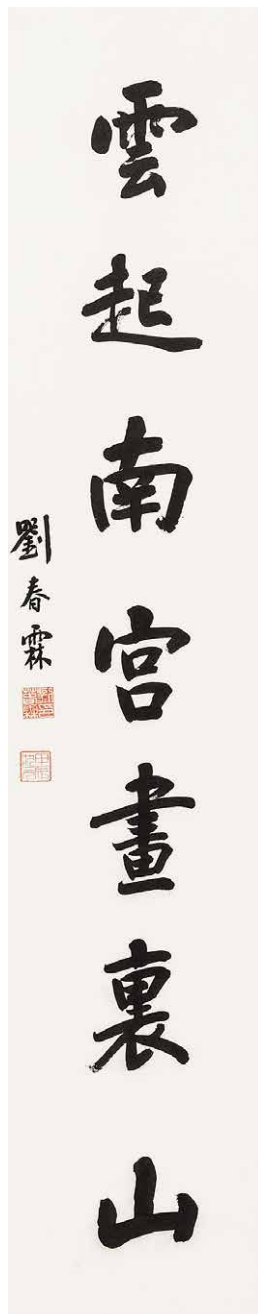 雲起南宮畫裏山
劉春霖